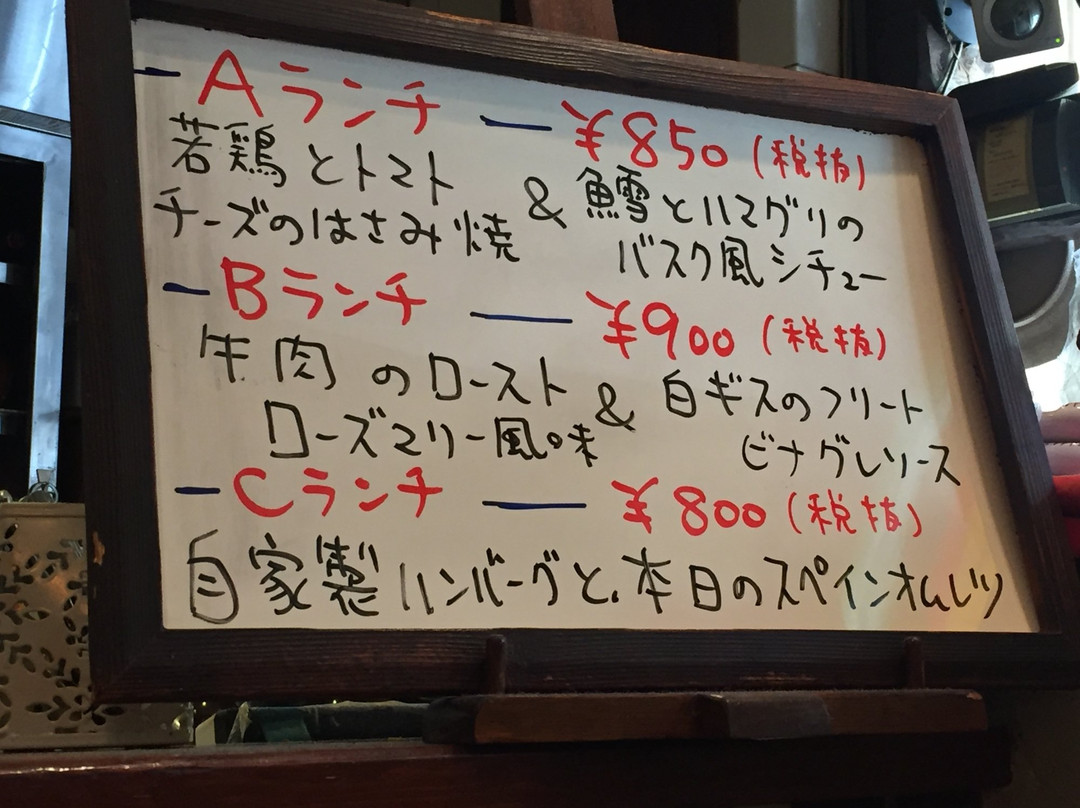 Aランチ — ¥850(税抜)
若鶏とトマト
チーズのはさみ焼 & 鱈とハマグリの
バスク風シチュー
Bランチ — ¥900(税抜)
牛肉のロースト
ローズマリー風味 & 白ギスのフリート
ビナグレソース
Cランチ — ¥800(税抜)
自家製ハンバーグと、本日のスペインオムレツ